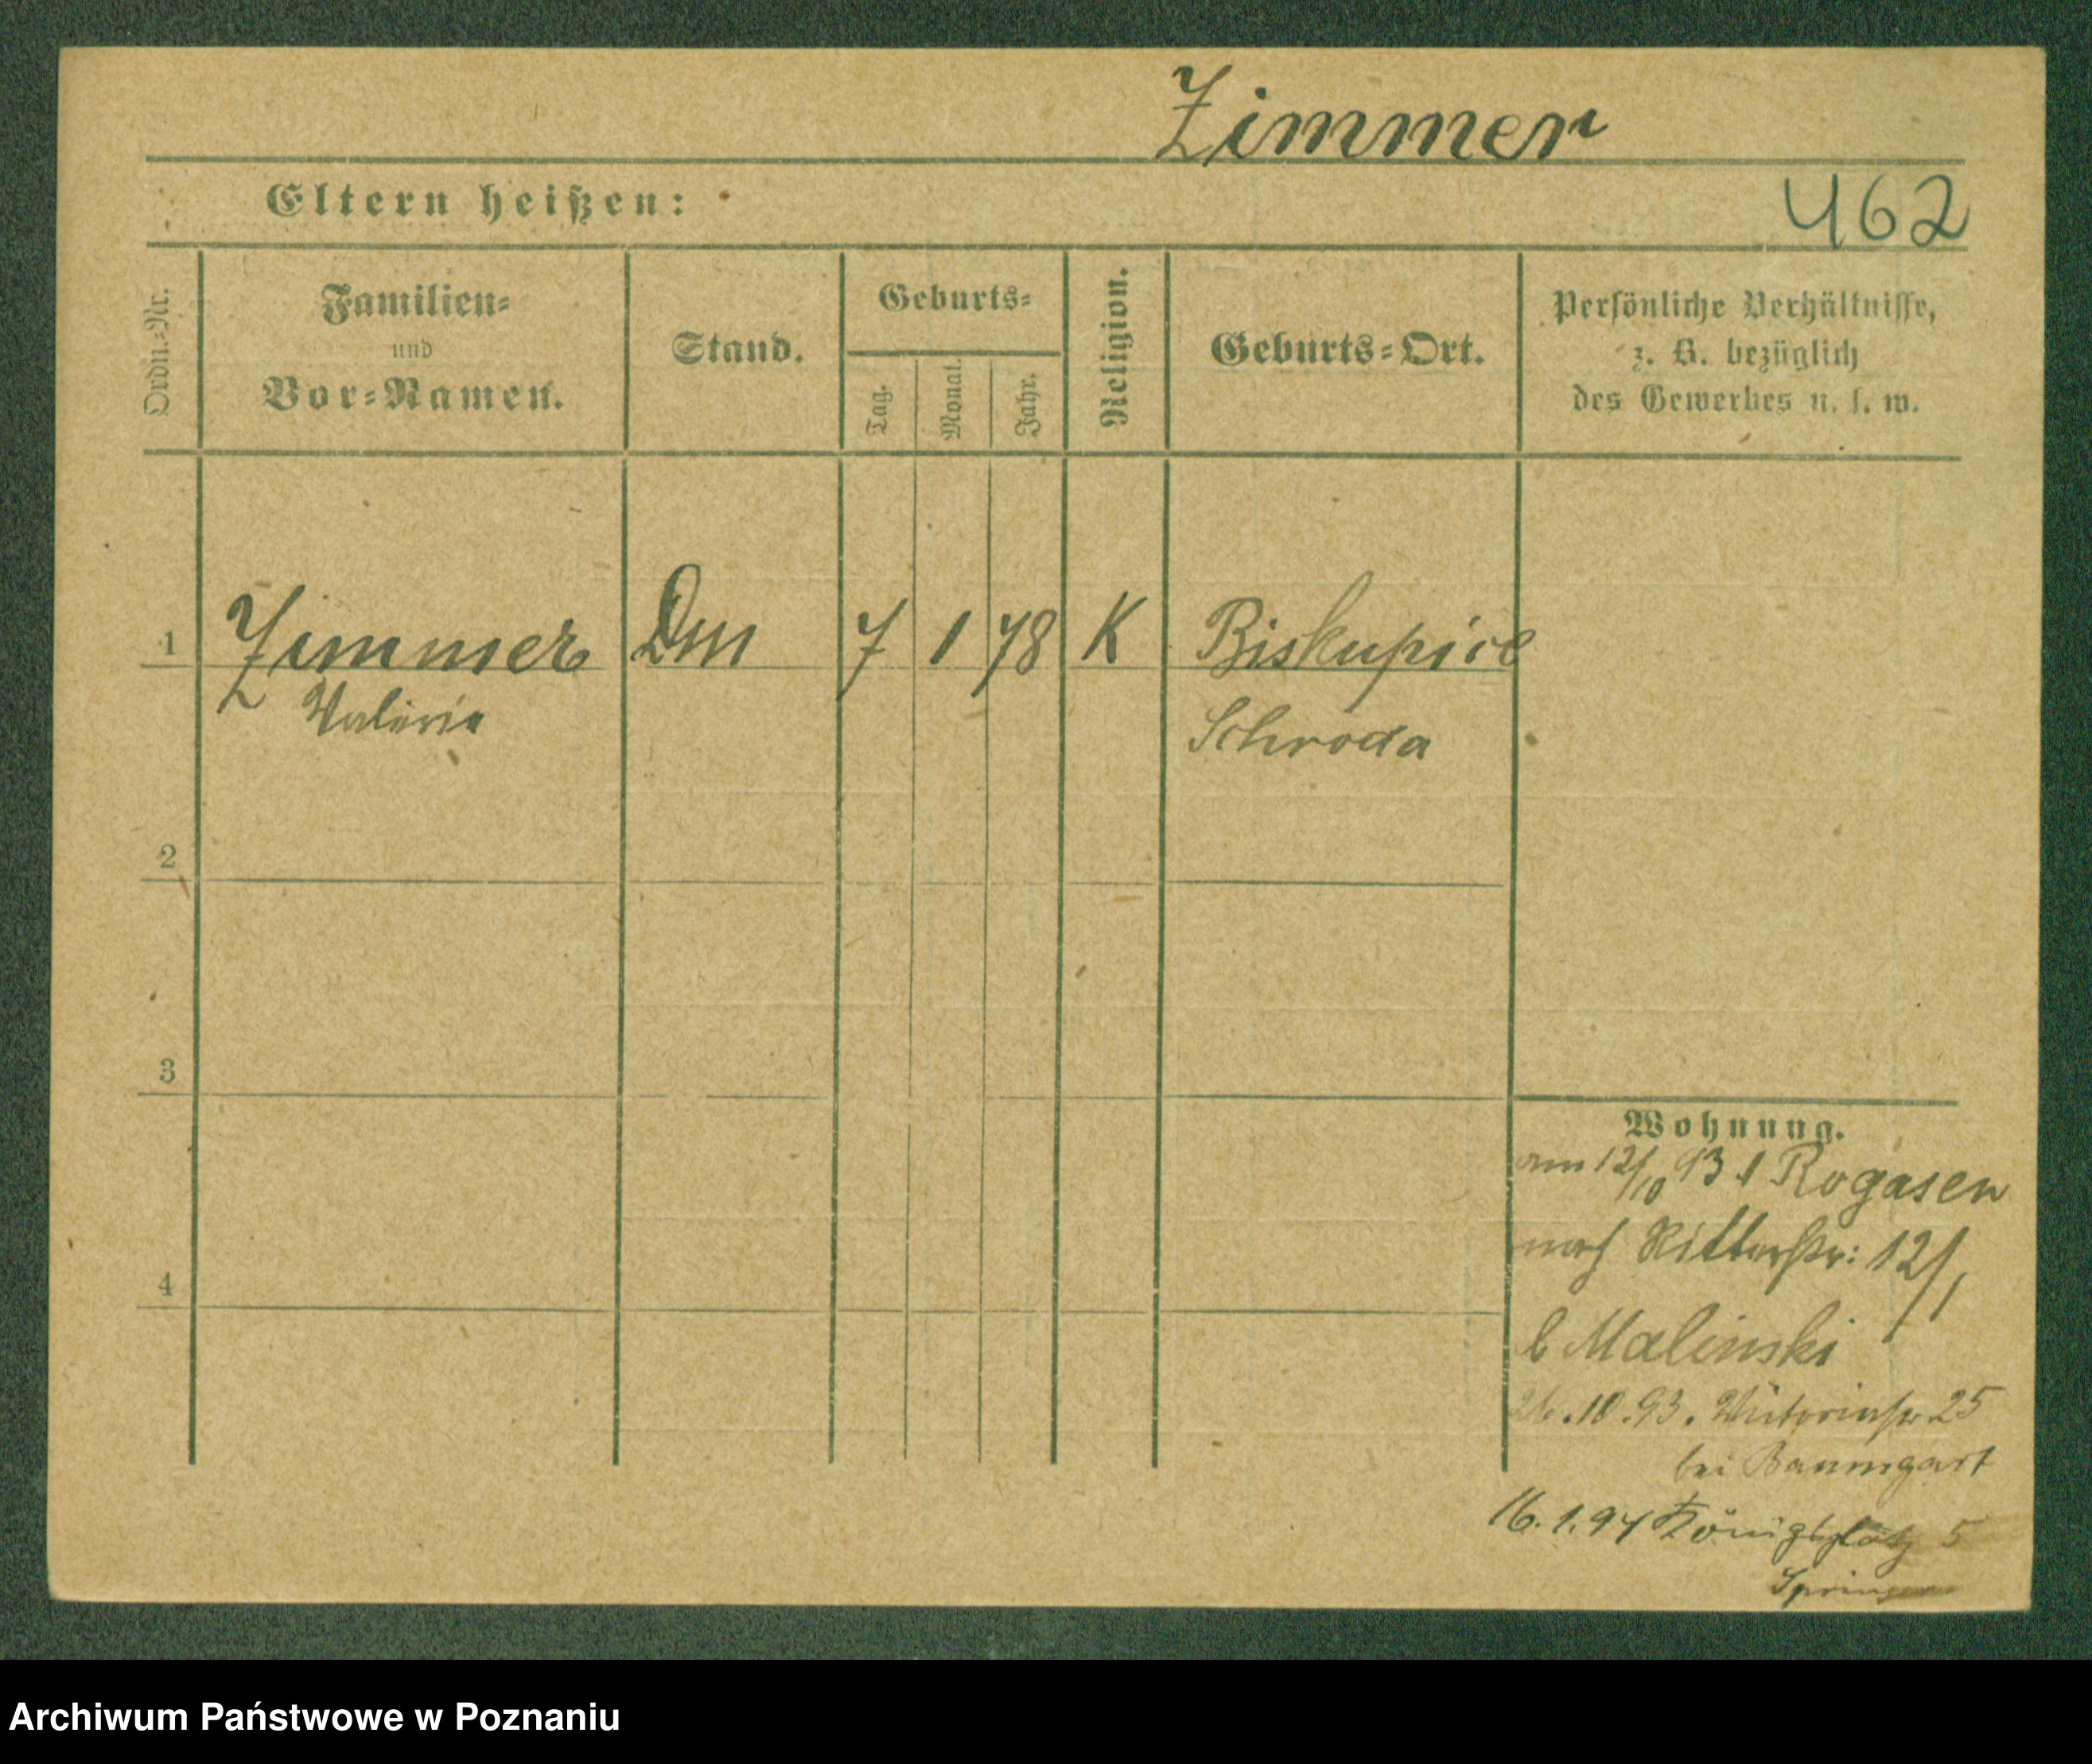 Zimmer
Eltern heißen:
462
Ordn.-Nr.
Familien-
und
Vor-Namen.
Stand.
Geburts-
Tag.
Monat.
Jahr.
Religion.
Geburts-Ort.
Persönliche Verhältnisse,
z. B. bezüglich
des Gewerbes u. s. w.
1 Zimmer Dm 7 1 78 K Biskupice
Valerie Schroda
2
3
4
Wohnung.
am 12/10 93 Rogasen
nach Ritterstr: 12/1
b Malinski
26.10.93. 25
bei Baumgart
16.1.94 Königsplatz 5
Springer
Archiwum Państwowe w Poznaniu